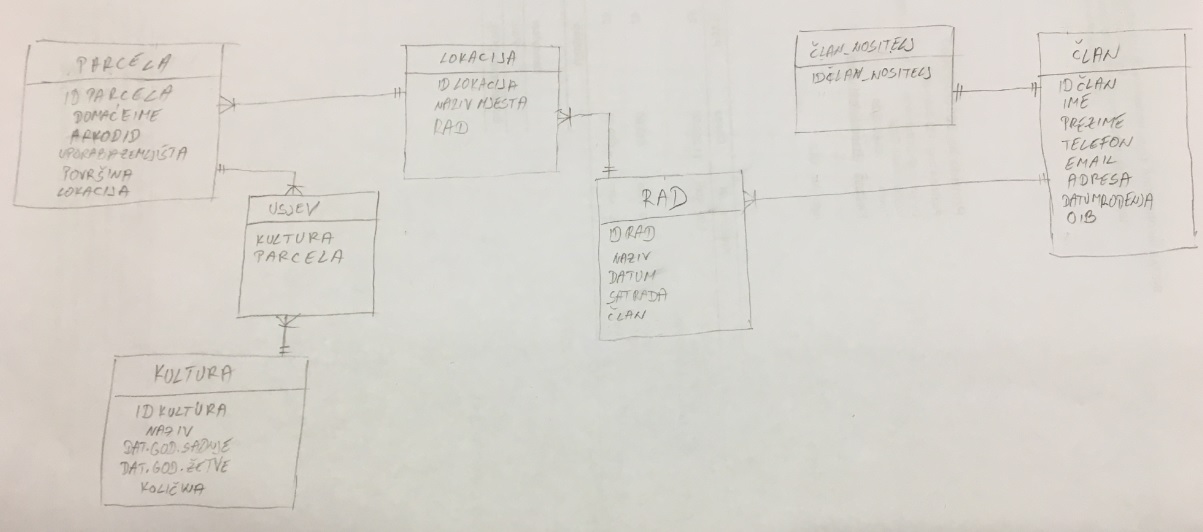 PARCELA
ID PARCELA
DOMAĆE IME
ARKOD ID
UPORABA ZEMLJIŠTA
POVRŠINA
LOKACIJA
LOKACIJA
ID LOKACIJA
NAZIV MJESTA
RAD
ČLAN_NOSITELJ
IDČLAN_NOSITELJ
ČLAN
ID ČLAN
IME
PREZIME
TELEFON
EMAIL
ADRESA
DATUMROĐENJA
OIB
USJEV
KULTURA
PARCELA
RAD
ID RAD
NAZIV
DATUM
SATRADA
ČLAN
KULTURA
ID KULTURA
NAZIV
DAT.GOD.SADNJE
DAT.GOD.ŽETVE
KOLIČINA